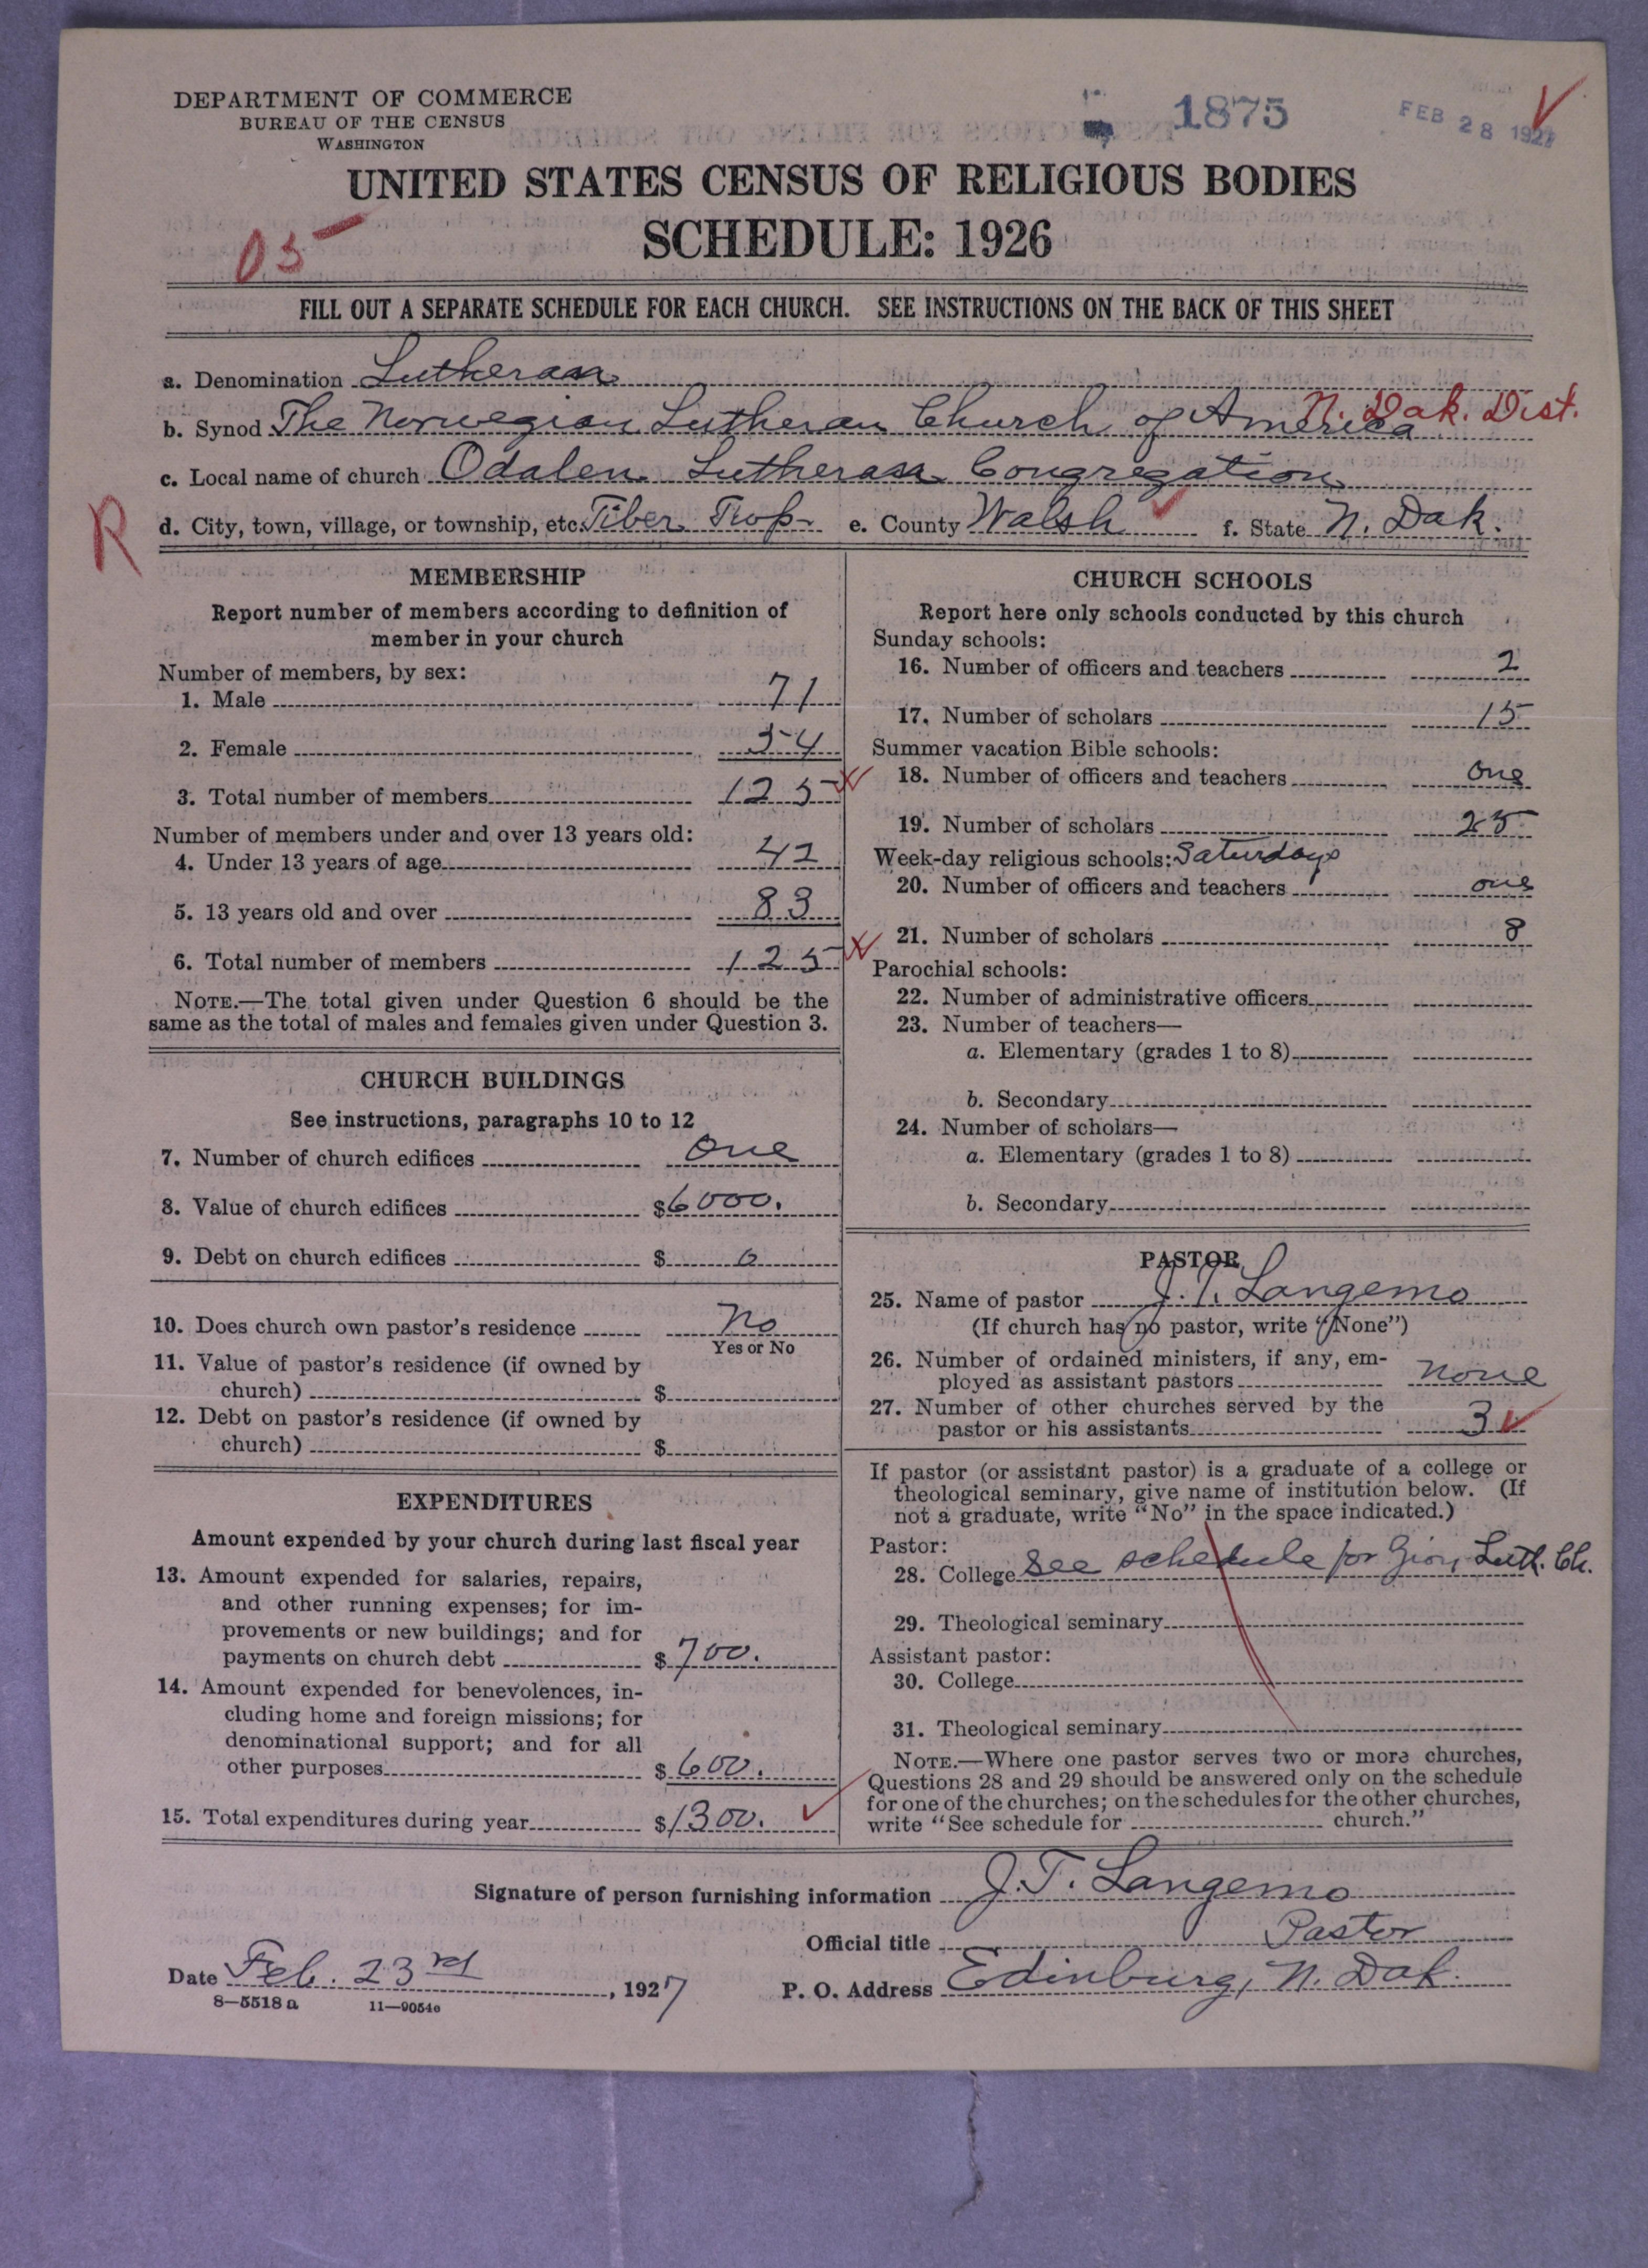 DEPARTMENT OF COMMERCE
BUREAU OF THE CENSUS
WASHINGTON
1875
FEB 28 1927
UNITED STATES CENSUS OF RELIGIOUS BODIES
SCHEDULE: 1926
05
FILL OUT A SEPARATE SCHEDULE FOR EACH CHURCH. SEE INSTRUCTIONS ON THE BACK OF THIS SHEET
a. Denomination Lutheran
b. Synod The Norwegian Lutheran Church of America N. Dak. Dist.
c. Local name of church Odalen Lutheran Congregation
R
d. City, town, village, or township, etc. Tiber Twp e. County Walsh f. State N. Dak.
MEMBERSHIP
Report number of members according to definition of
member in your church
Number of members, by sex:
1. Male 71
2. Female 54
3. Total number of members 125
Number of members under and over 13 years old:
4. Under 13 years of age 42
5. 13 years old and over 83
6. Total number of members 125
NOTE.—The total given under Question 6 should be the
same as the total of males and females given under Question 3.
CHURCH BUILDINGS
See instructions, paragraphs 10 to 12
7. Number of church edifices One
8. Value of church edifices $6000.
9. Debt on church edifices $ 0
10. Does church own pastor's residence No
Yes or No
11. Value of pastor's residence (if owned by
church) $
12. Debt on pastor's residence (if owned by
church) $
EXPENDITURES
Amount expended by your church during last fiscal year
13. Amount expended for salaries, repairs,
and other running expenses; for im-
provements or new buildings; and for
payments on church debt $700.
14. Amount expended for benevolences, in-
cluding home and foreign missions; for
denominational support; and for all
other purposes $600.
15. Total expenditures during year $1300.
CHURCH SCHOOLS
Report here only schools conducted by this church
Sunday schools:
16. Number of officers and teachers 2
17. Number of scholars 15
Summer vacation Bible schools:
18. Number of officers and teachers One
19. Number of scholars 25
Week-day religious schools: Saturdays
20. Number of officers and teachers one
21. Number of scholars 8
Parochial schools:
22. Number of administrative officers
23. Number of teachers—
a. Elementary (grades 1 to 8)
b. Secondary
24. Number of scholars—
a. Elementary (grades 1 to 8)
b. Secondary
PASTOR
25. Name of pastor J. T. Langemo
(If church has no pastor, write "None")
26. Number of ordained ministers, if any, em-
ployed as assistant pastors None
27. Number of other churches served by the
pastor or his assistants 3
If pastor (or assistant pastor) is a graduate of a college or
theological seminary, give name of institution below. (If
not a graduate, write "No" in the space indicated.)
Pastor:
28. College See schedule for Zion Luth. Ch.
29. Theological seminary
Assistant pastor:
30. College
31. Theological seminary
NOTE.—Where one pastor serves two or more churches,
Questions 28 and 29 should be answered only on the schedule
for one of the churches; on the schedules for the other churches,
write "See schedule for church."
Signature of person furnishing information J. T. Langemo
Official title Pastor
Date Feb. 23rd, 1927 P. O. Address Edinburg, N. Dak.
8—5518 a 11—9054e